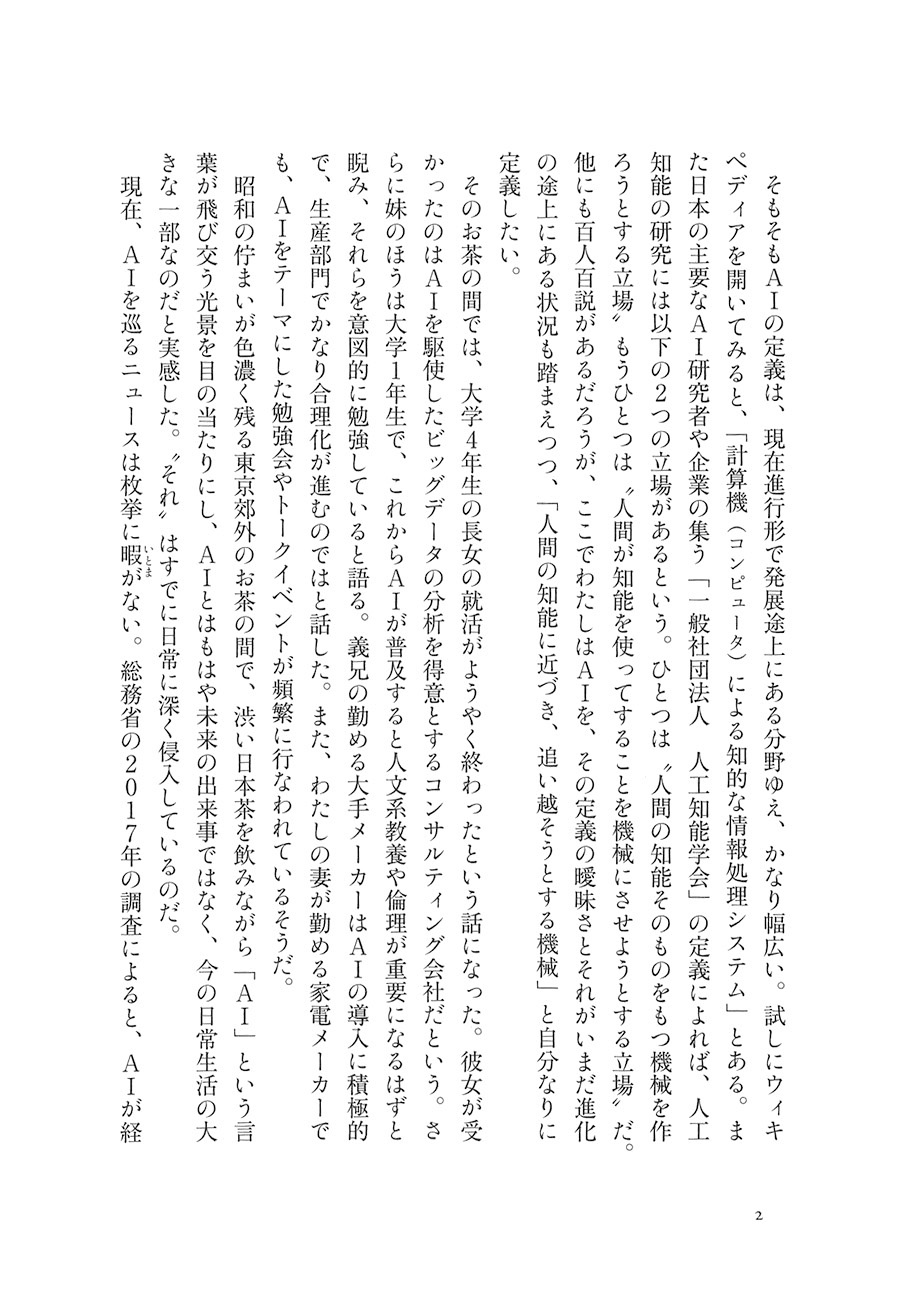 そもそもＡＩの定義は、現在進行形で発展途上にある分野ゆえ、かなり幅広い。試しにウィキ
ペディアを開いてみると、「計算機（コンピュータ）による知的な情報処理システム」とある。ま
た日本の主要なＡＩ研究者や企業の集う「一般社団法人　人工知能学会」の定義によれば、人工
知能の研究には以下の２つの立場があるという。ひとつは〝人間の知能そのものをもつ機械を作
ろうとする立場〟もうひとつは〝人間が知能を使ってすることを機械にさせようとする立場〟だ。
他にも百人百説があるだろうが、ここでわたしはＡＩを、その定義の曖昧さとそれがいまだ進化
の途上にある状況も踏まえつつ、「人間の知能に近づき、追い越そうとする機械」と自分なりに
定義したい。
　そのお茶の間では、大学４年生の長女の就活がようやく終わったという話になった。彼女が受
かったのはＡＩを駆使したビッグデータの分析を得意とするコンサルティング会社だという。さ
らに妹のほうは大学１年生で、これからＡＩが普及すると人文系教養や倫理が重要になるはずと
睨み、それらを意図的に勉強していると語る。義兄の勤める大手メーカーはＡＩの導入に積極的
で、生産部門でかなり合理化が進むのではと話した。また、わたしの妻が勤める家電メーカーで
も、ＡＩをテーマにした勉強会やトークイベントが頻繁に行なわれているそうだ。
　昭和の佇まいが色濃く残る東京郊外のお茶の間で、渋い日本茶を飲みながら「ＡＩ」という言
葉が飛び交う光景を目の当たりにし、ＡＩとはもはや未来の出来事ではなく、今の日常生活の大
きな一部なのだと実感した。〝それ〟はすでに日常に深く侵入しているのだ。
　現在、ＡＩを巡るニュースは枚挙に暇がない。総務省の２０１７年の調査によると、ＡＩが経
いとま
2